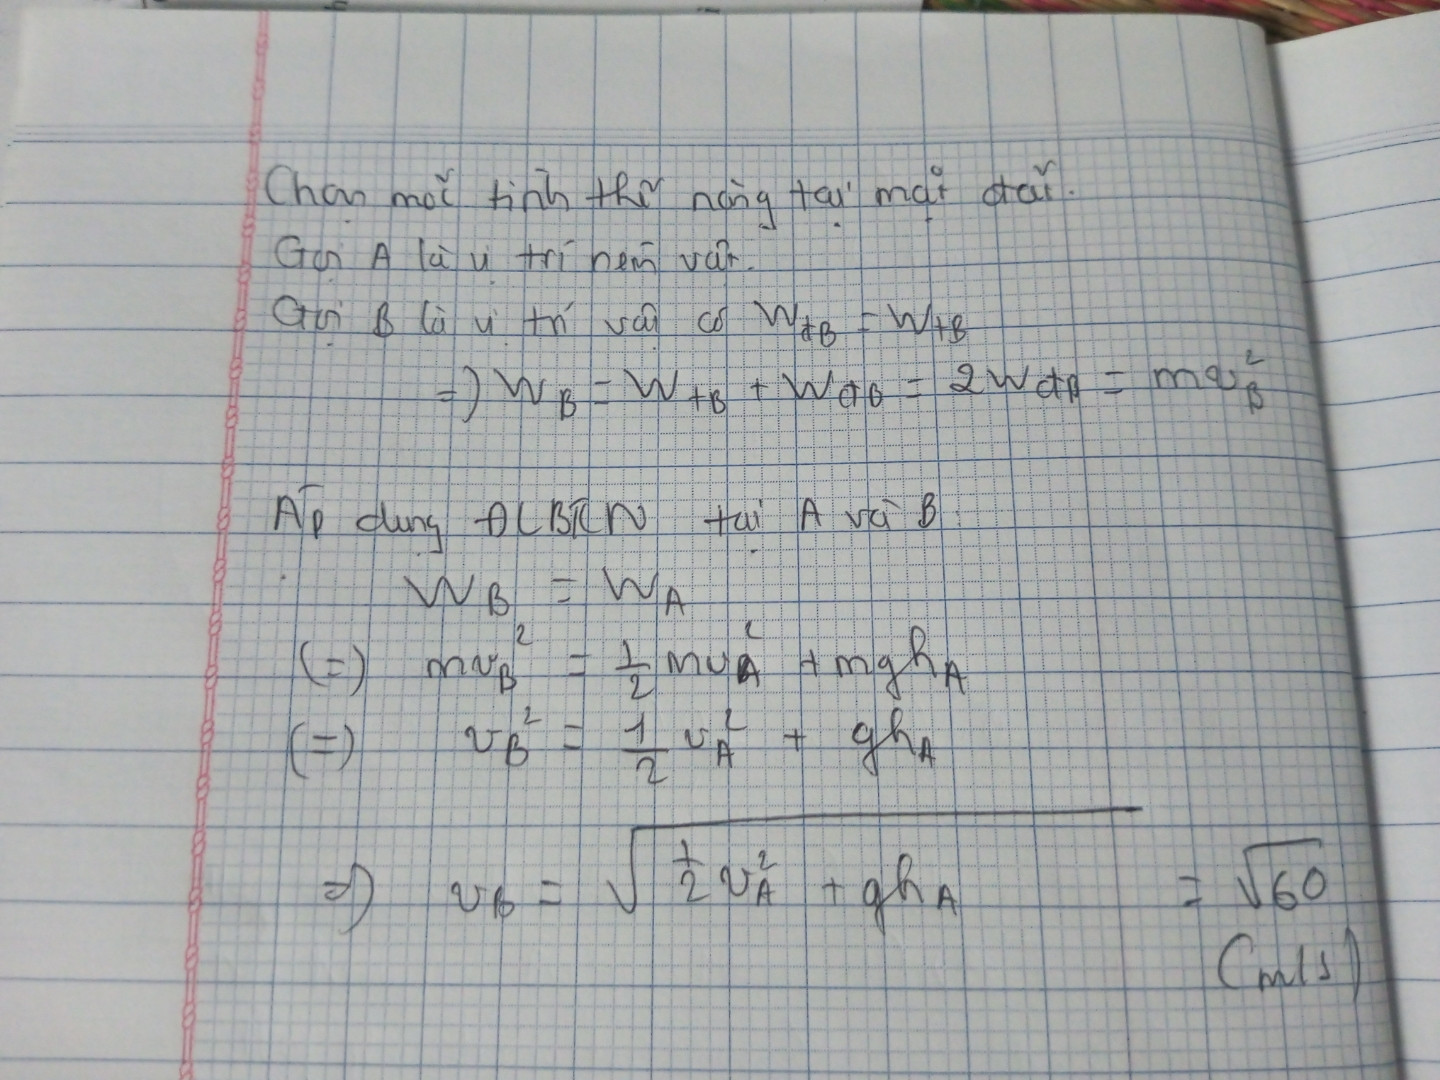 Chọn mốc tính thế năng tại mặt đất.
Gọi A là vị trí ném vật.
Gọi B là vị trí vật có WđB = WtB
=) WB = WtB + WđB = 2WđB = mvB²
Áp dụng ĐLBTCN tại A và B
WB = WA
(=) mvB² = 1/2 mvA² + mghA
(=) vB² = 1/2 vA² + ghA
=) vB = √(1/2 vA² + ghA) = √60
(m/s)